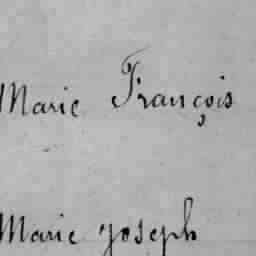 Marie François
Marie joseph